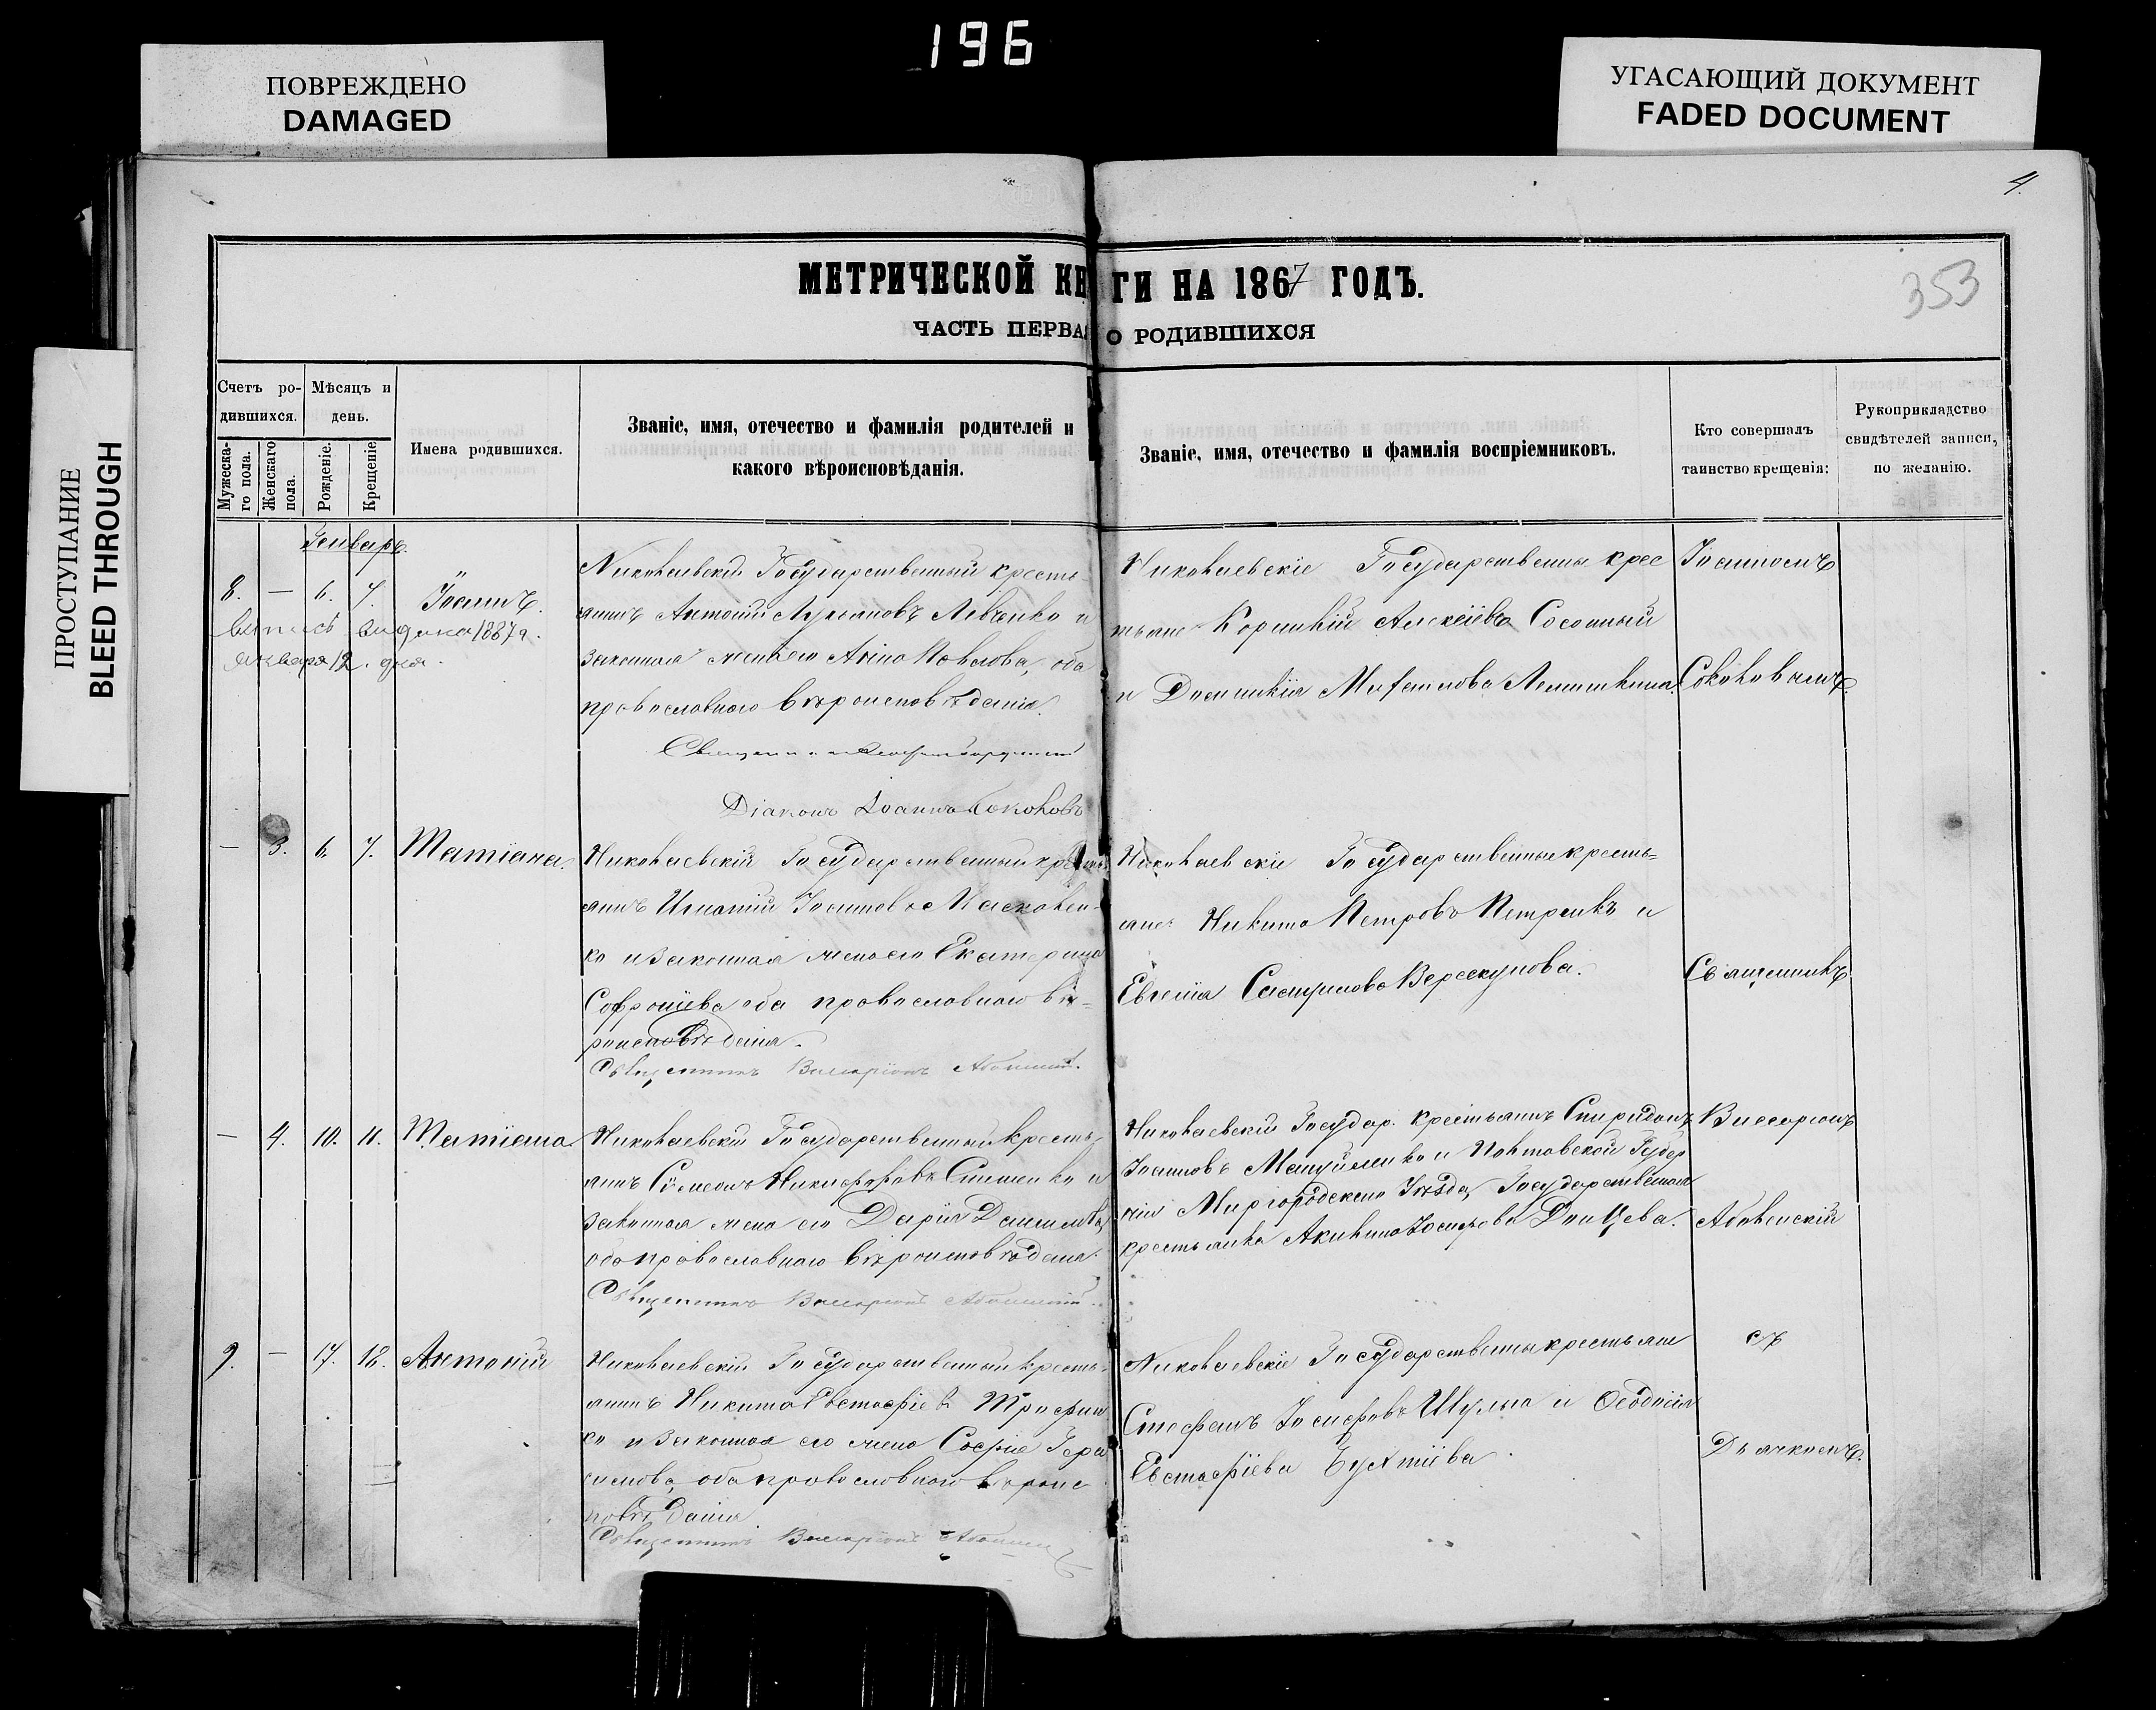 196
ПОВРЕЖДЕНО
DAMAGED
УГАСАЮЩИЙ ДОКУМЕНТ
FADED DOCUMENT
ПРОСТУПАНИЕ
BLEED THROUGH
4.
353
МЕТРИЧЕСКОЙ КН ГИ НА 1867 ГОДЪ.
ЧАСТЬ ПЕРВАЯ О РОДИВШИХСЯ
Счетъ ро-
дившихся.
Мѣсяцъ и
день.
Мужеска-
го пола.
Женскаго
пола.
Рожденіе.
Крещеніе
Имена родившихся.
Званіе, имя, отечество и фамилія родителей и
какого вѣроисповѣданія.
Званіе, имя, отечество и фамилія воспріемниковъ.
Кто совершалъ
таинство крещенія:
Рукоприкладство
свидѣтелей записи,
по желанію.
Генварь.
8. — 6. 7. Іоаннъ.
1887 г.
января 12. дня.
Николаевскій Государственный кресть-
янинъ Антоній Лукьяновъ Левченко и
законная жена его Анна Павлова, оба
православнаго вѣроисповѣданія.
Діаконъ Іоаннъ Соколовъ
Николаевскіе Государственны крес
тьяне Корнилій Алексіевъ Сосонный
и Домникія
Іоанномъ
Соколовымъ
— 3. 6. 7. Татіана.
Николаевскій Государственный кресть
янинъ Игнатій Іоанновъ Масковен-
ко и законная жена его Екатерина
Софроніева оба православнаго вѣ-
роисповѣданія.
Священникъ Виссаріонъ
Николаевскіе Государственные кресть=
яне: Никита Петровъ Петренкъ и
Евгенія Верескунова.
Священникъ
— 4. 10. 11. Татіана
Николаевскій Государственный кресть-
янинъ Сѵмеонъ Никифоровъ и
законная жена его Дарія Даниилова,
оба православнаго вѣроисповѣданія.
Священникъ Виссаріонъ
Николаевскій Государ. крестьянинъ Спиридонъ
Іоанновъ Мануйленко и Полтавской Губер
ніи Миргородскаго Уѣзда, Государственная
крестьянка Акилина Іосифова Донцева.
Виссаріонъ
9. — 17. 18. Антоній
Николаевскій Государственный кресть-
янинъ Никита Евстафіевъ Трофим
ко и законная его жена Софія Гера
симова, оба православнаго вѣроис
повѣданія
Священникъ Виссаріонъ
Николаевскіе Государственны крестьяне
Стефанъ Іосифовъ Шульга и Ѳеодосія
Евстафіева
съ
Дьячкомъ.